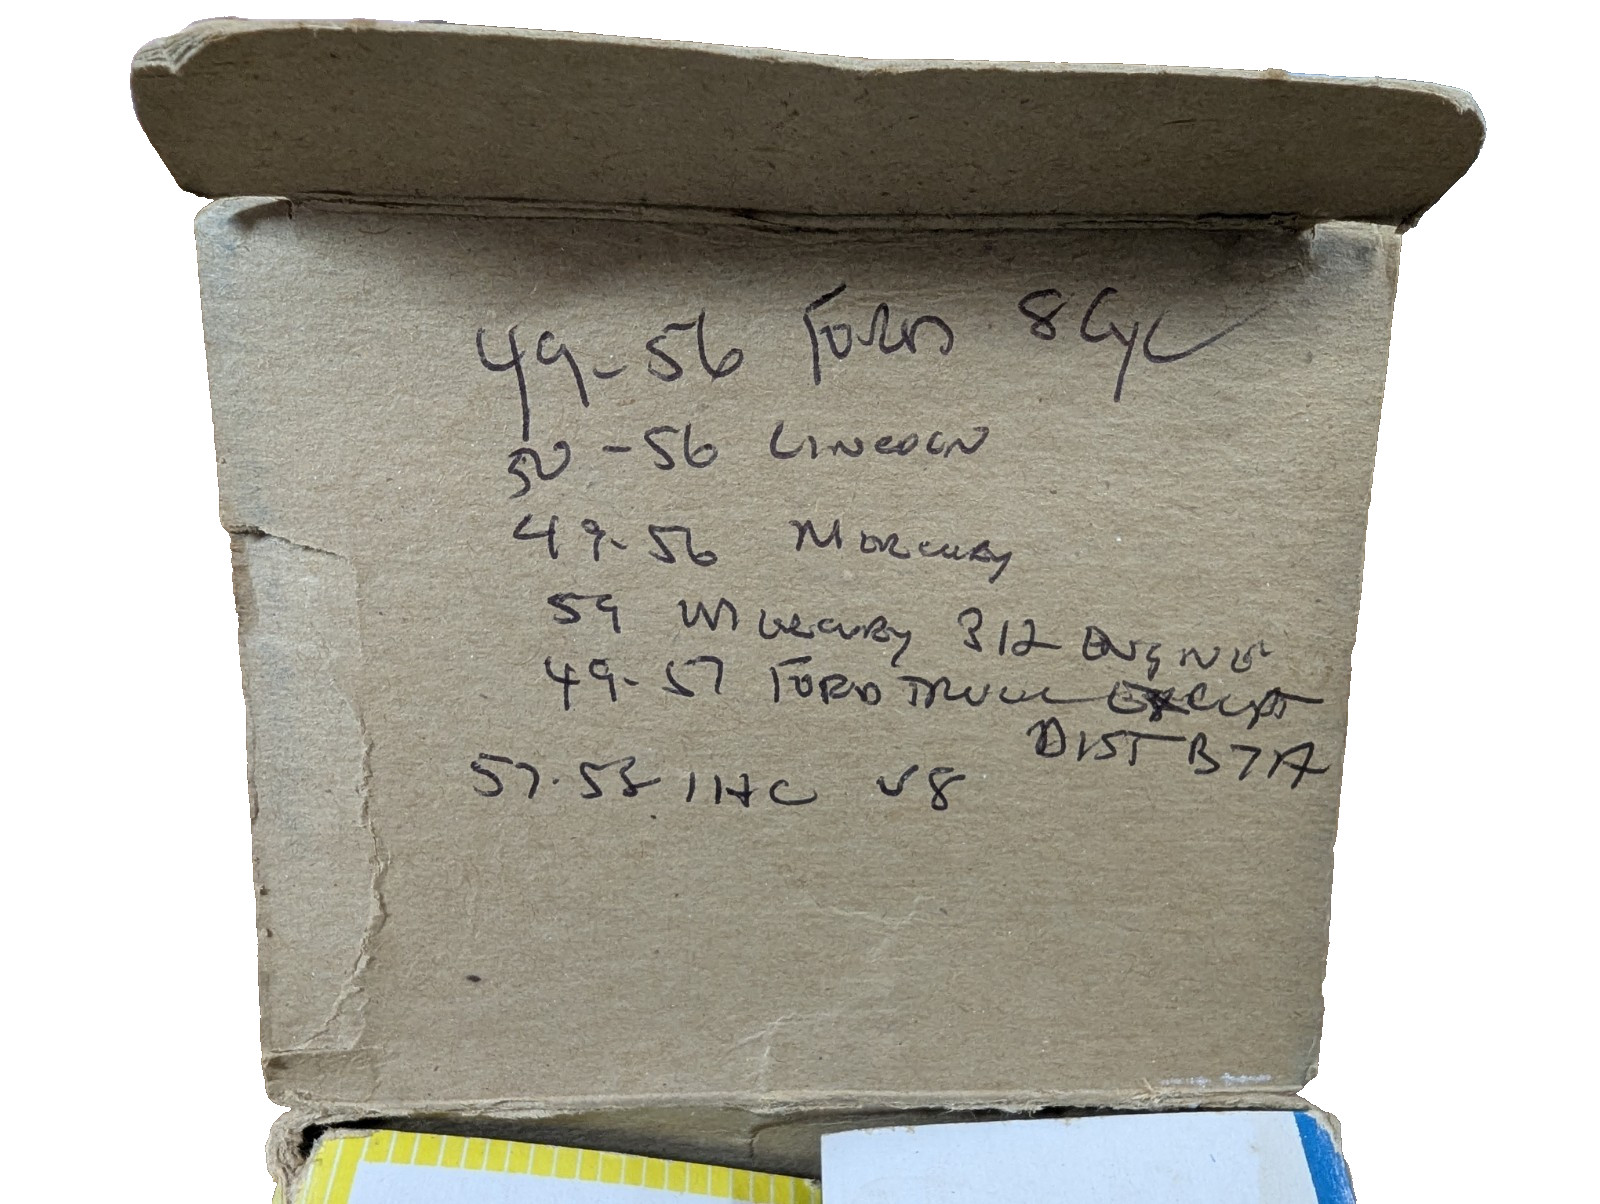 49-56 FORD 8 Cyl
50-56 LINCOLN
49-56 MERCURY
59 MERCURY 312 ENGINE
49-57 FORD TRUCK EXCEPT
DIST B7A
57-58 IHC V8